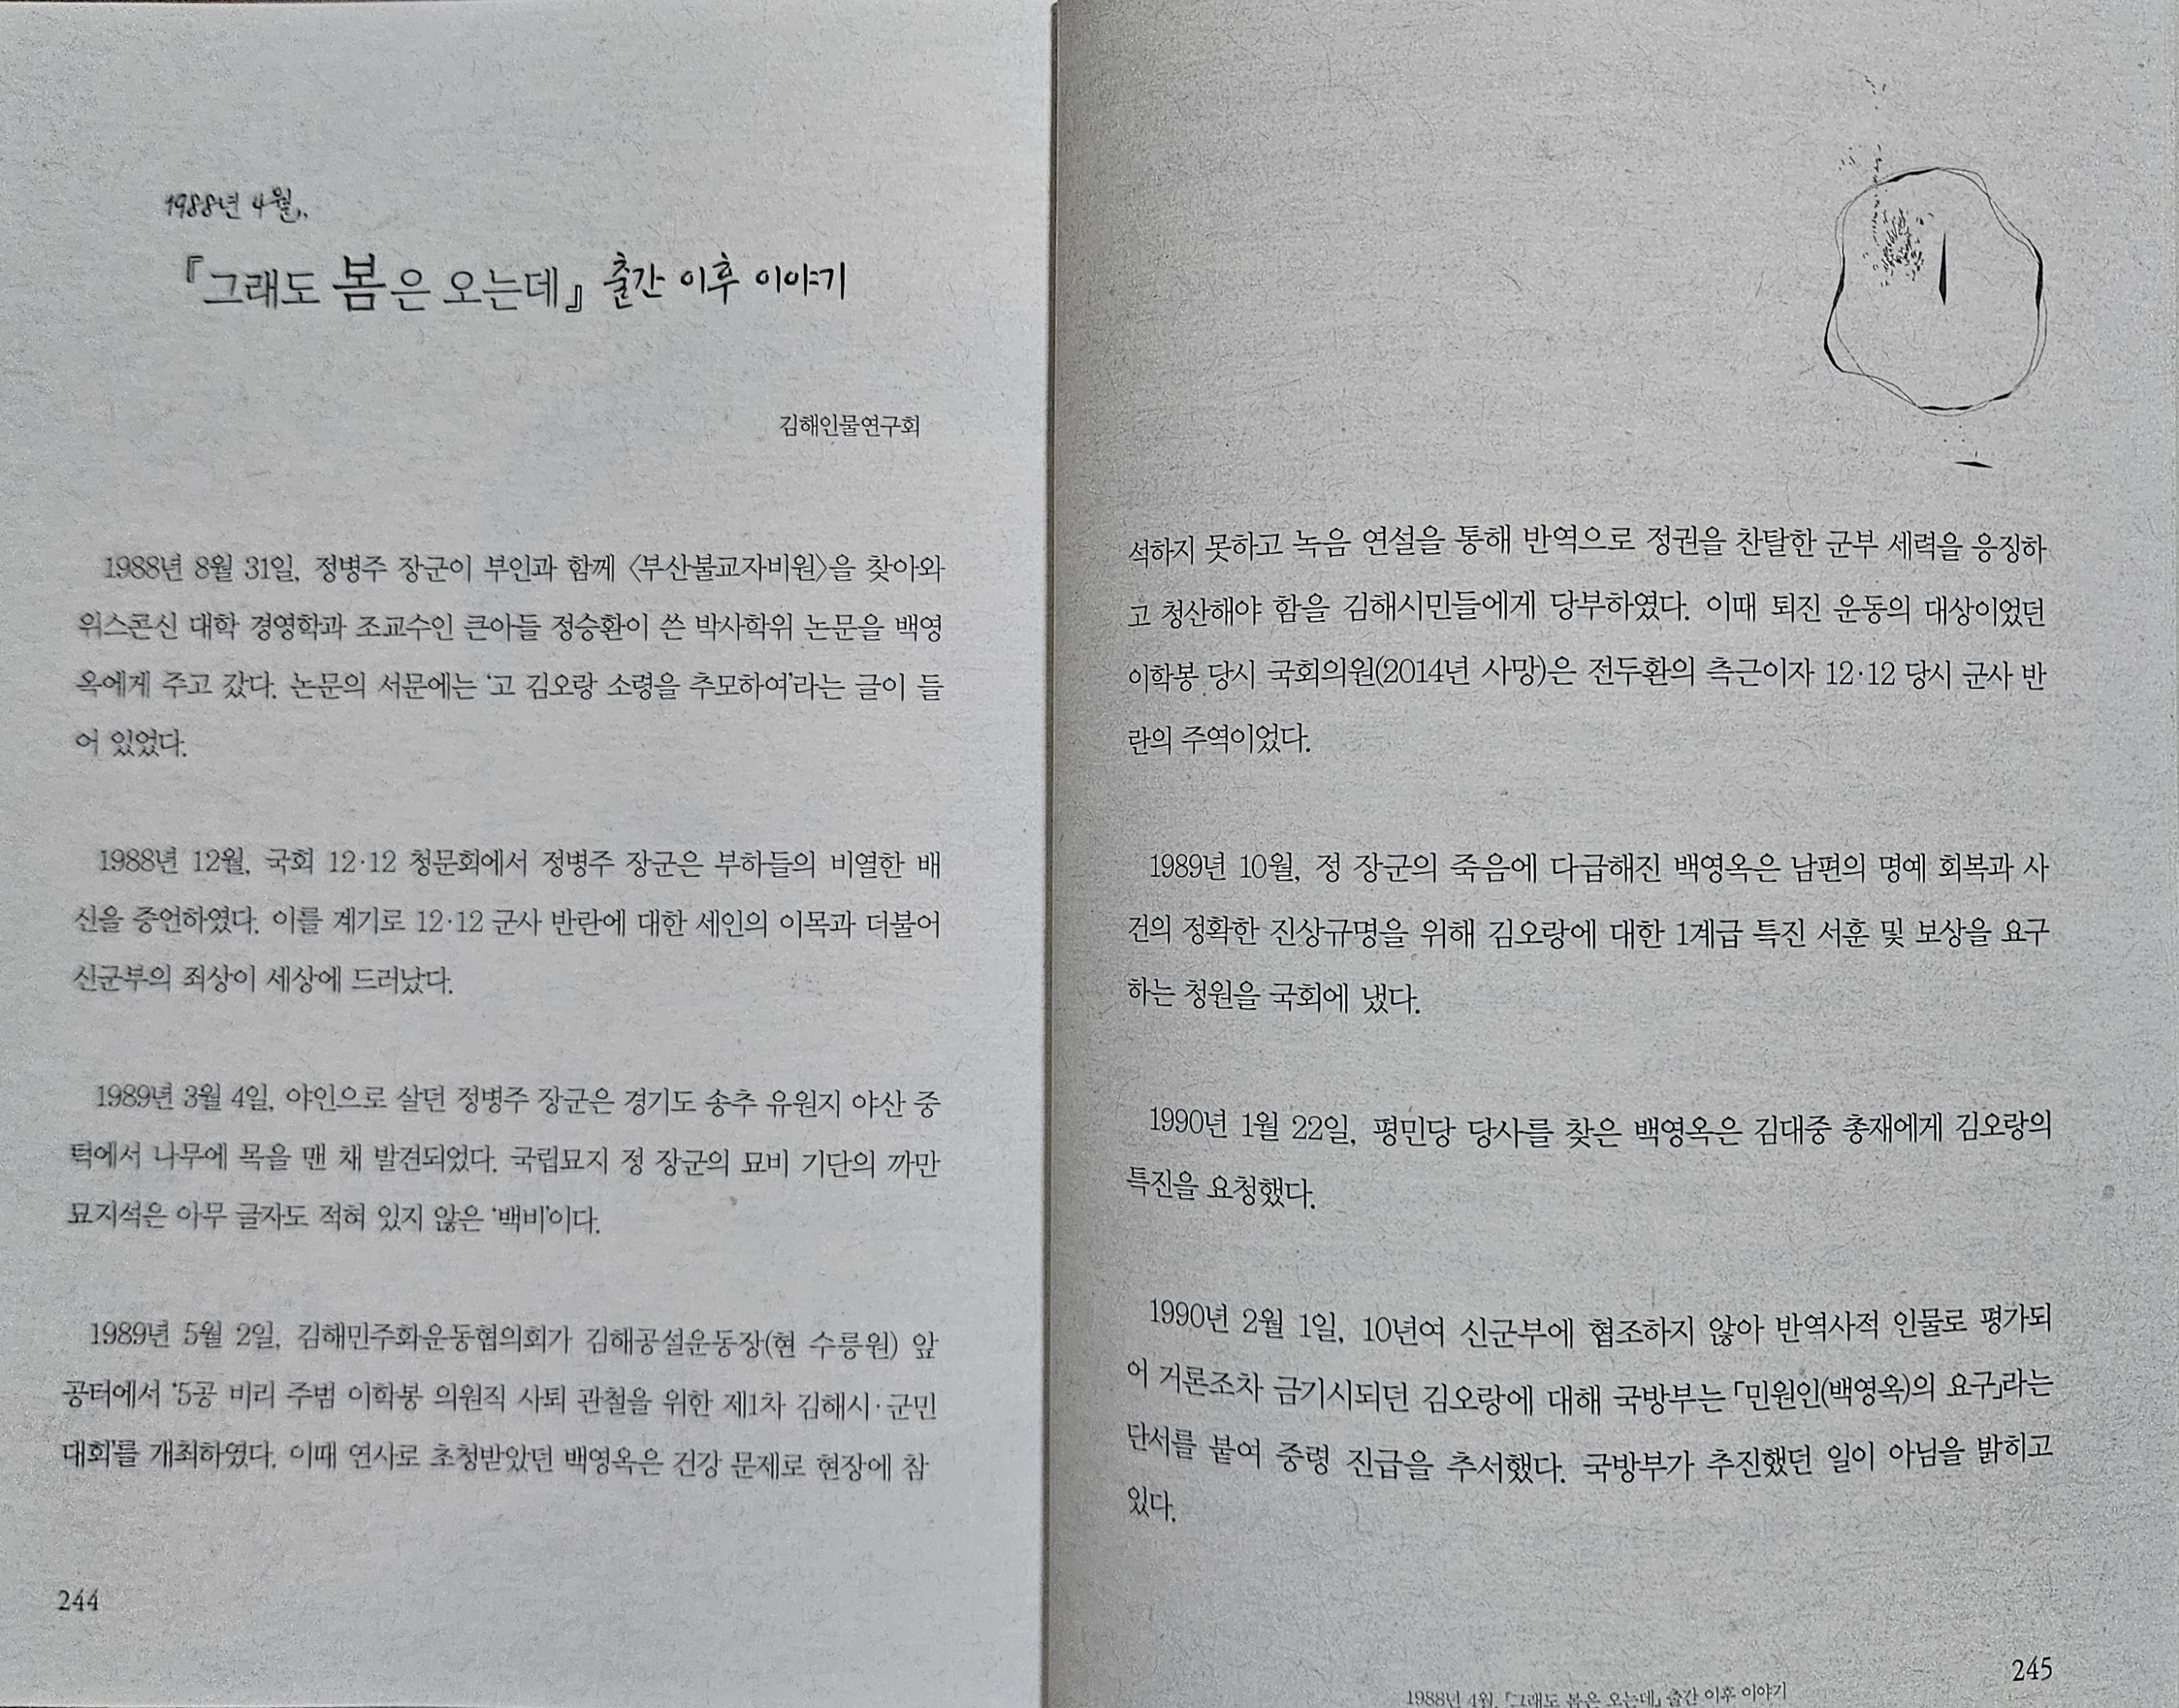 1988년 4월,
『그래도 봄은 오는데』 출간 이후 이야기
김해인물연구회
1988년 8월 31일, 정병주 장군이 부인과 함께 〈부산불교자비원〉을 찾아와
위스콘신 대학 경영학과 조교수인 큰아들 정승환이 쓴 박사학위 논문을 백영
옥에게 주고 갔다. 논문의 서문에는 ‘고 김오랑 소령을 추모하여’라는 글이 들
어 있었다.
1988년 12월, 국회 12·12 청문회에서 정병주 장군은 부하들의 비열한 배
신을 증언하였다. 이를 계기로 12·12 군사 반란에 대한 세인의 이목과 더불어
신군부의 죄상이 세상에 드러났다.
1989년 3월 4일, 야인으로 살던 정병주 장군은 경기도 송추 유원지 야산 중
턱에서 나무에 목을 맨 채 발견되었다. 국립묘지 정 장군의 묘비 기단의 까만
묘지석은 아무 글자도 적혀 있지 않은 ‘백비’이다.
1989년 5월 2일, 김해민주화운동협의회가 김해공설운동장(현 수릉원) 앞
공터에서 ‘5공 비리 주범 이학봉 의원직 사퇴 관철을 위한 제1차 김해시·군민
대회’를 개최하였다. 이때 연사로 초청받았던 백영옥은 건강 문제로 현장에 참
244
석하지 못하고 녹음 연설을 통해 반역으로 정권을 찬탈한 군부 세력을 응징하
고 청산해야 함을 김해시민들에게 당부하였다. 이때 퇴진 운동의 대상이었던
이학봉 당시 국회의원(2014년 사망)은 전두환의 측근이자 12·12 당시 군사 반
란의 주역이었다.
1989년 10월, 정 장군의 죽음에 다급해진 백영옥은 남편의 명예 회복과 사
건의 정확한 진상규명을 위해 김오랑에 대한 1계급 특진 서훈 및 보상을 요구
하는 청원을 국회에 냈다.
1990년 1월 22일, 평민당 당사를 찾은 백영옥은 김대중 총재에게 김오랑의
특진을 요청했다.
1990년 2월 1일, 10년여 신군부에 협조하지 않아 반역사적 인물로 평가되
어 거론조차 금기시되던 김오랑에 대해 국방부는 「민원인(백영옥)의 요구」라는
단서를 붙여 중령 진급을 추서했다. 국방부가 추진했던 일이 아님을 밝히고
있다.
245
1988년 4월, 「그래도 봄은 오는데」 출간 이후 이야기